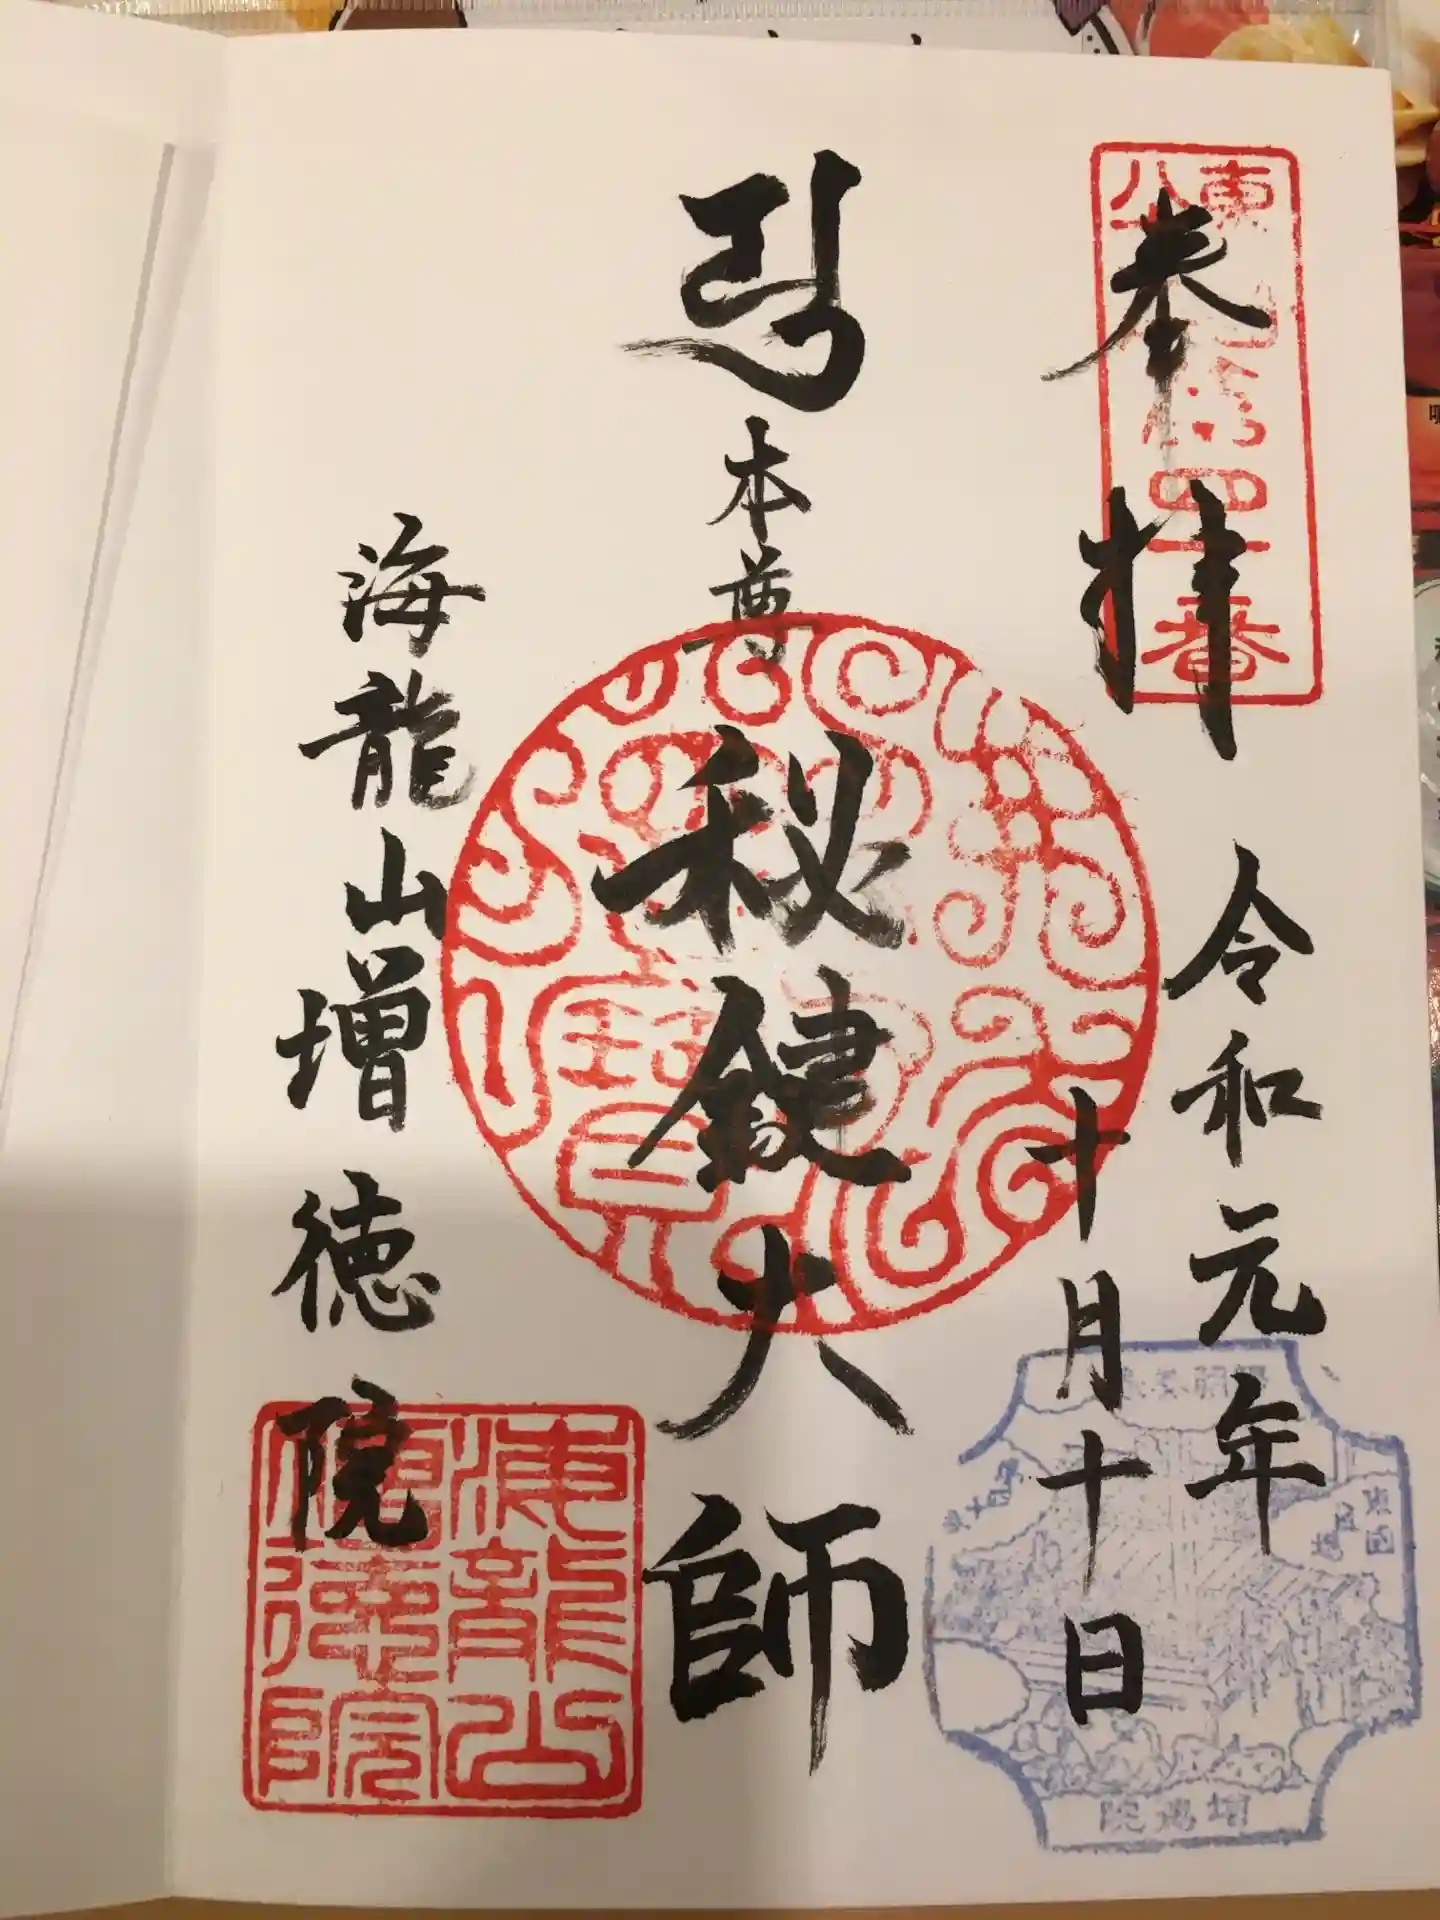 奉拝
令和元年
十月十日
本尊
秘鍵大師
海龍山増徳院
四十番
海龍山
増徳院
増徳院